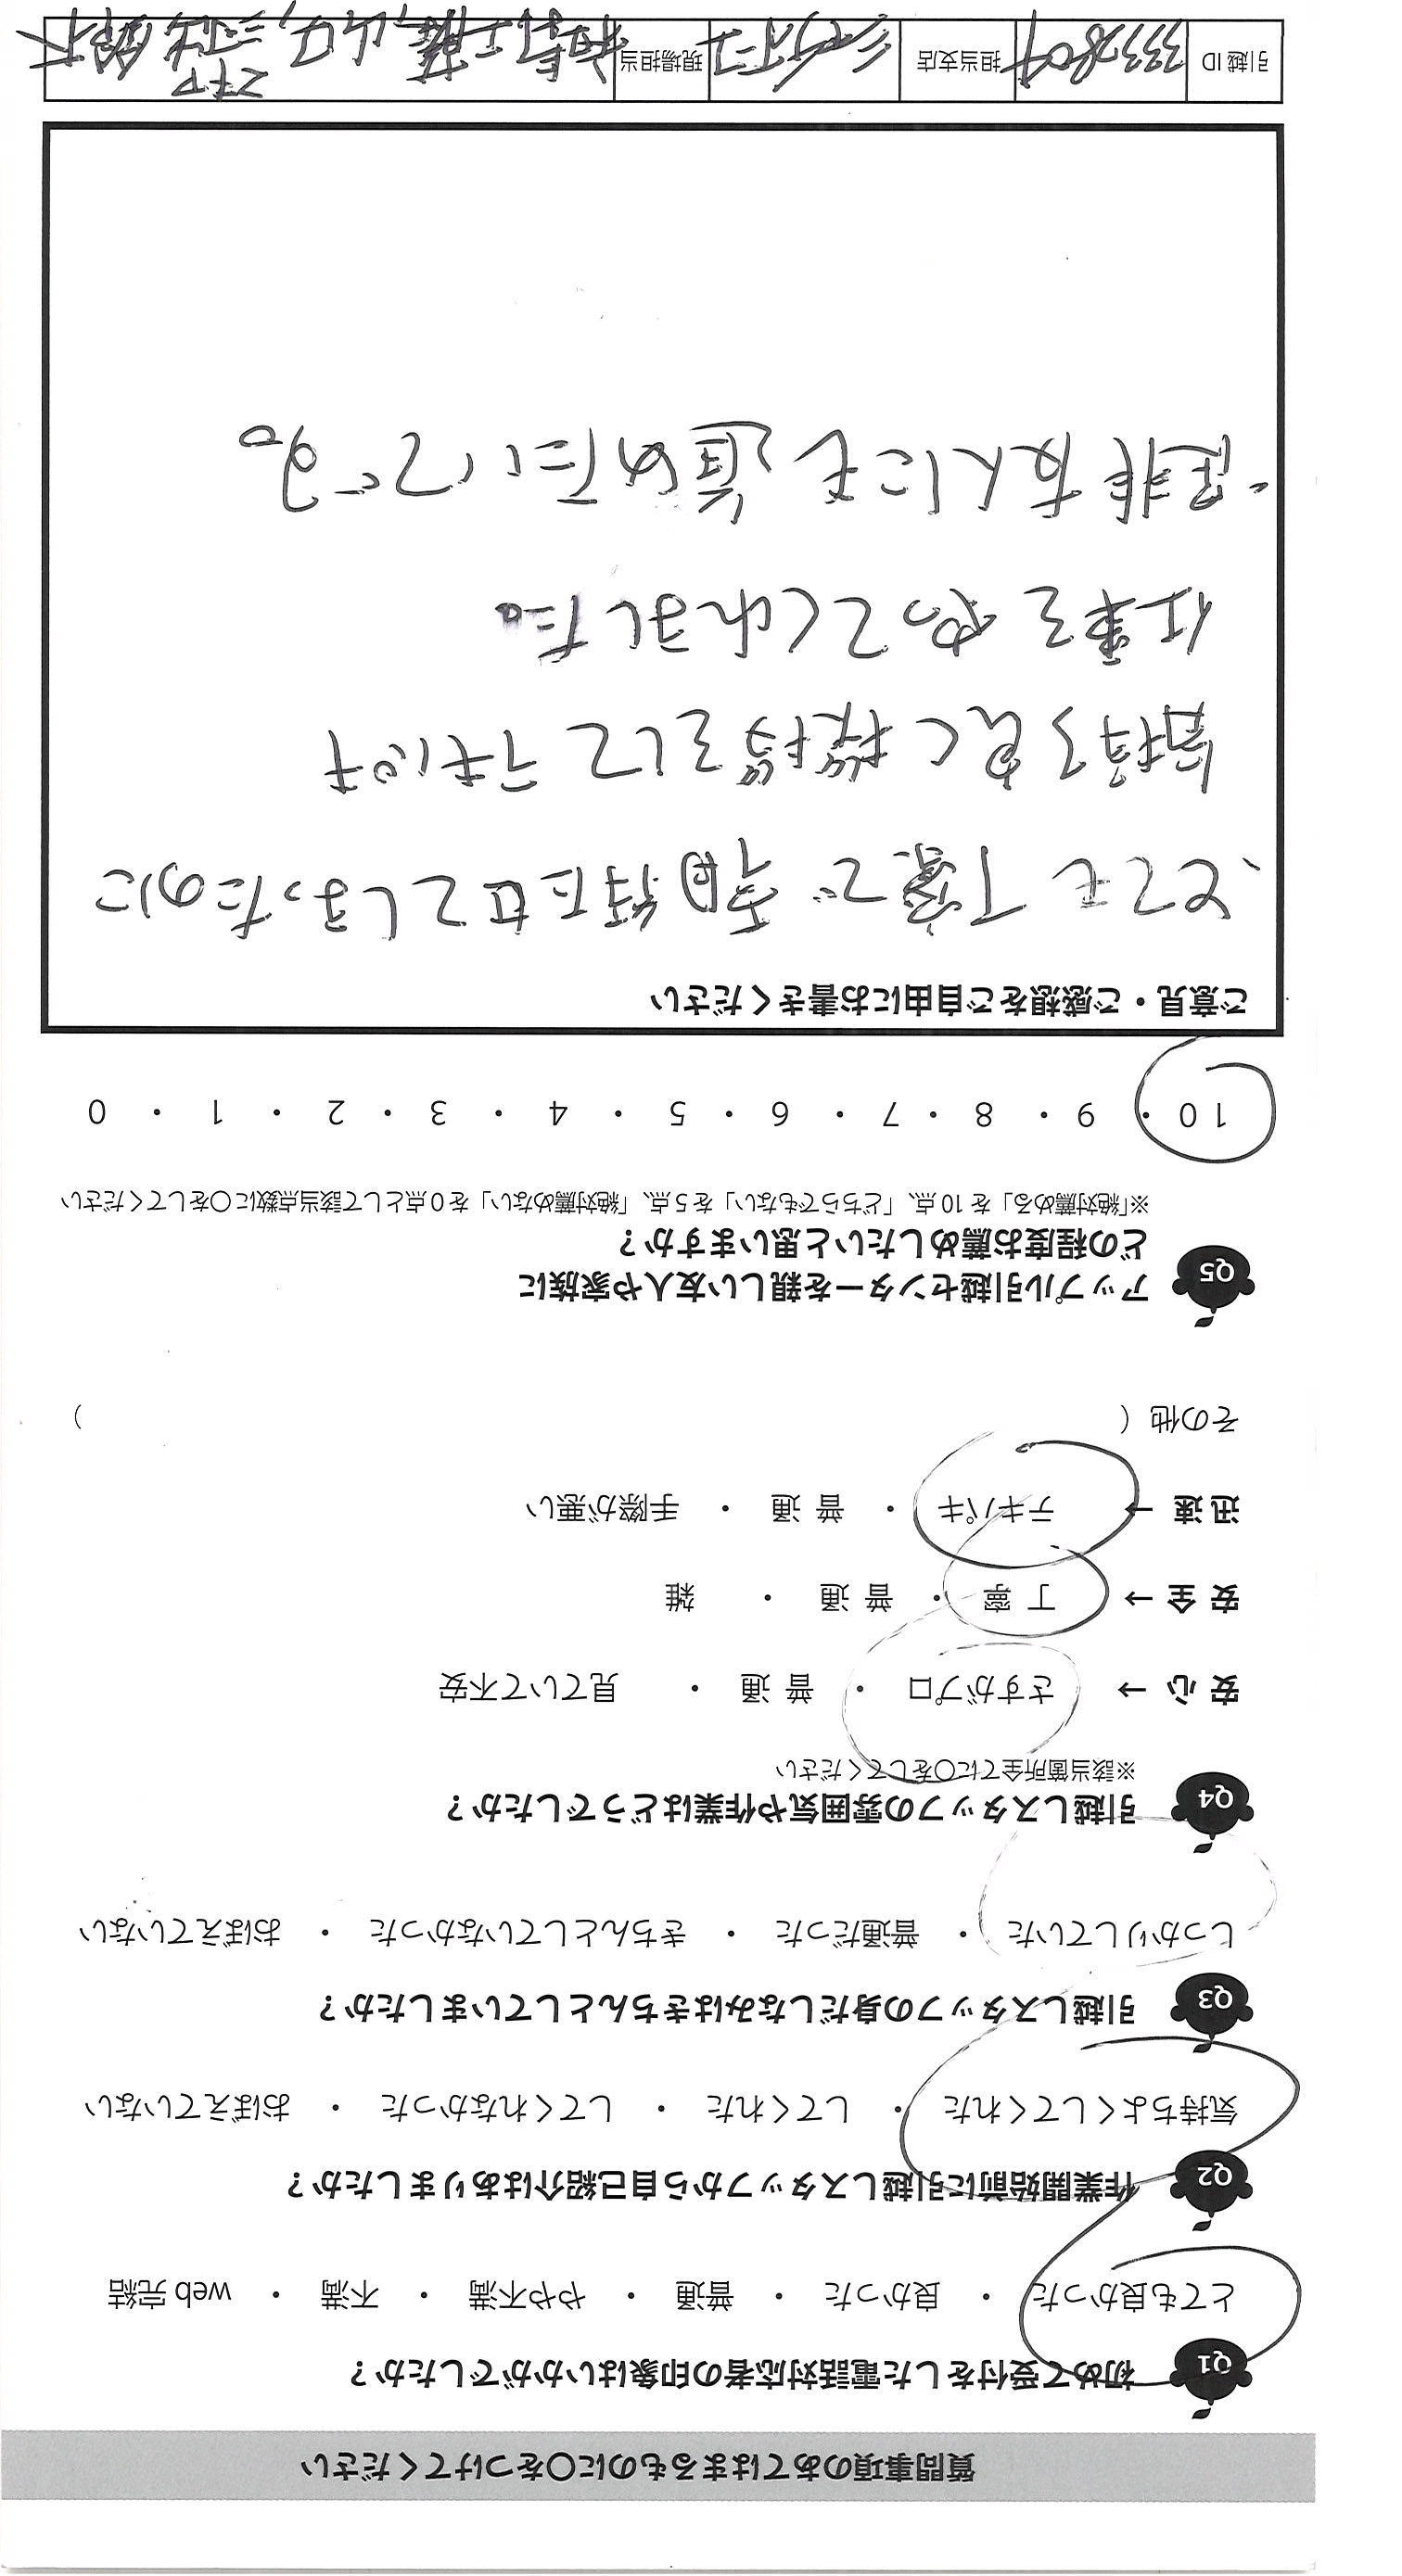 質問事項のあてはまるものに〇をつけてください
Q1 初めて受付をした電話対応者の印象はいかがでしたか？
とても良かった ・ 良かった ・ 普通 ・ やや不満 ・ 不満 ・ web 完結
Q2 作業開始前に引越しスタッフから自己紹介はありましたか？
気持ちよくしてくれた ・ してくれた ・ してくれなかった ・ おぼえていない
Q3 引越しスタッフの身だしなみはきちんとしていましたか？
しっかりしていた ・ 普通だった ・ きちんとしていなかった ・ おぼえていない
Q4 引越しスタッフの雰囲気や作業はどうでしたか？
※該当箇所全てに〇をしてください
安 心 → さすがプロ ・ 普 通 ・ 見ていて不安
安 全 → 丁 寧 ・ 普 通 ・ 雑
迅 速 → テキパキ ・ 普 通 ・ 手際が悪い
その他 （ ）
Q5 アップル引越センターを親しい友人や家族に
どの程度お薦めしたいと思いますか？
※「絶対薦める」を 10 点、「どちらでもない」を 5 点、「絶対薦めない」を 0 点として該当点数に〇をしてください
10 ・ 9 ・ 8 ・ 7 ・ 6 ・ 5 ・ 4 ・ 3 ・ 2 ・ 1 ・ 0
ご意見・ご感想をご自由にお書きください
・とても丁寧で 時間待たせてしまったのに
気持ち良く挨拶をして テキパキ
仕事を やってくれました。
・是非友人にも薦めたいです。
引越 ID 3332804 担当支店 現場担当 工藤,山口,